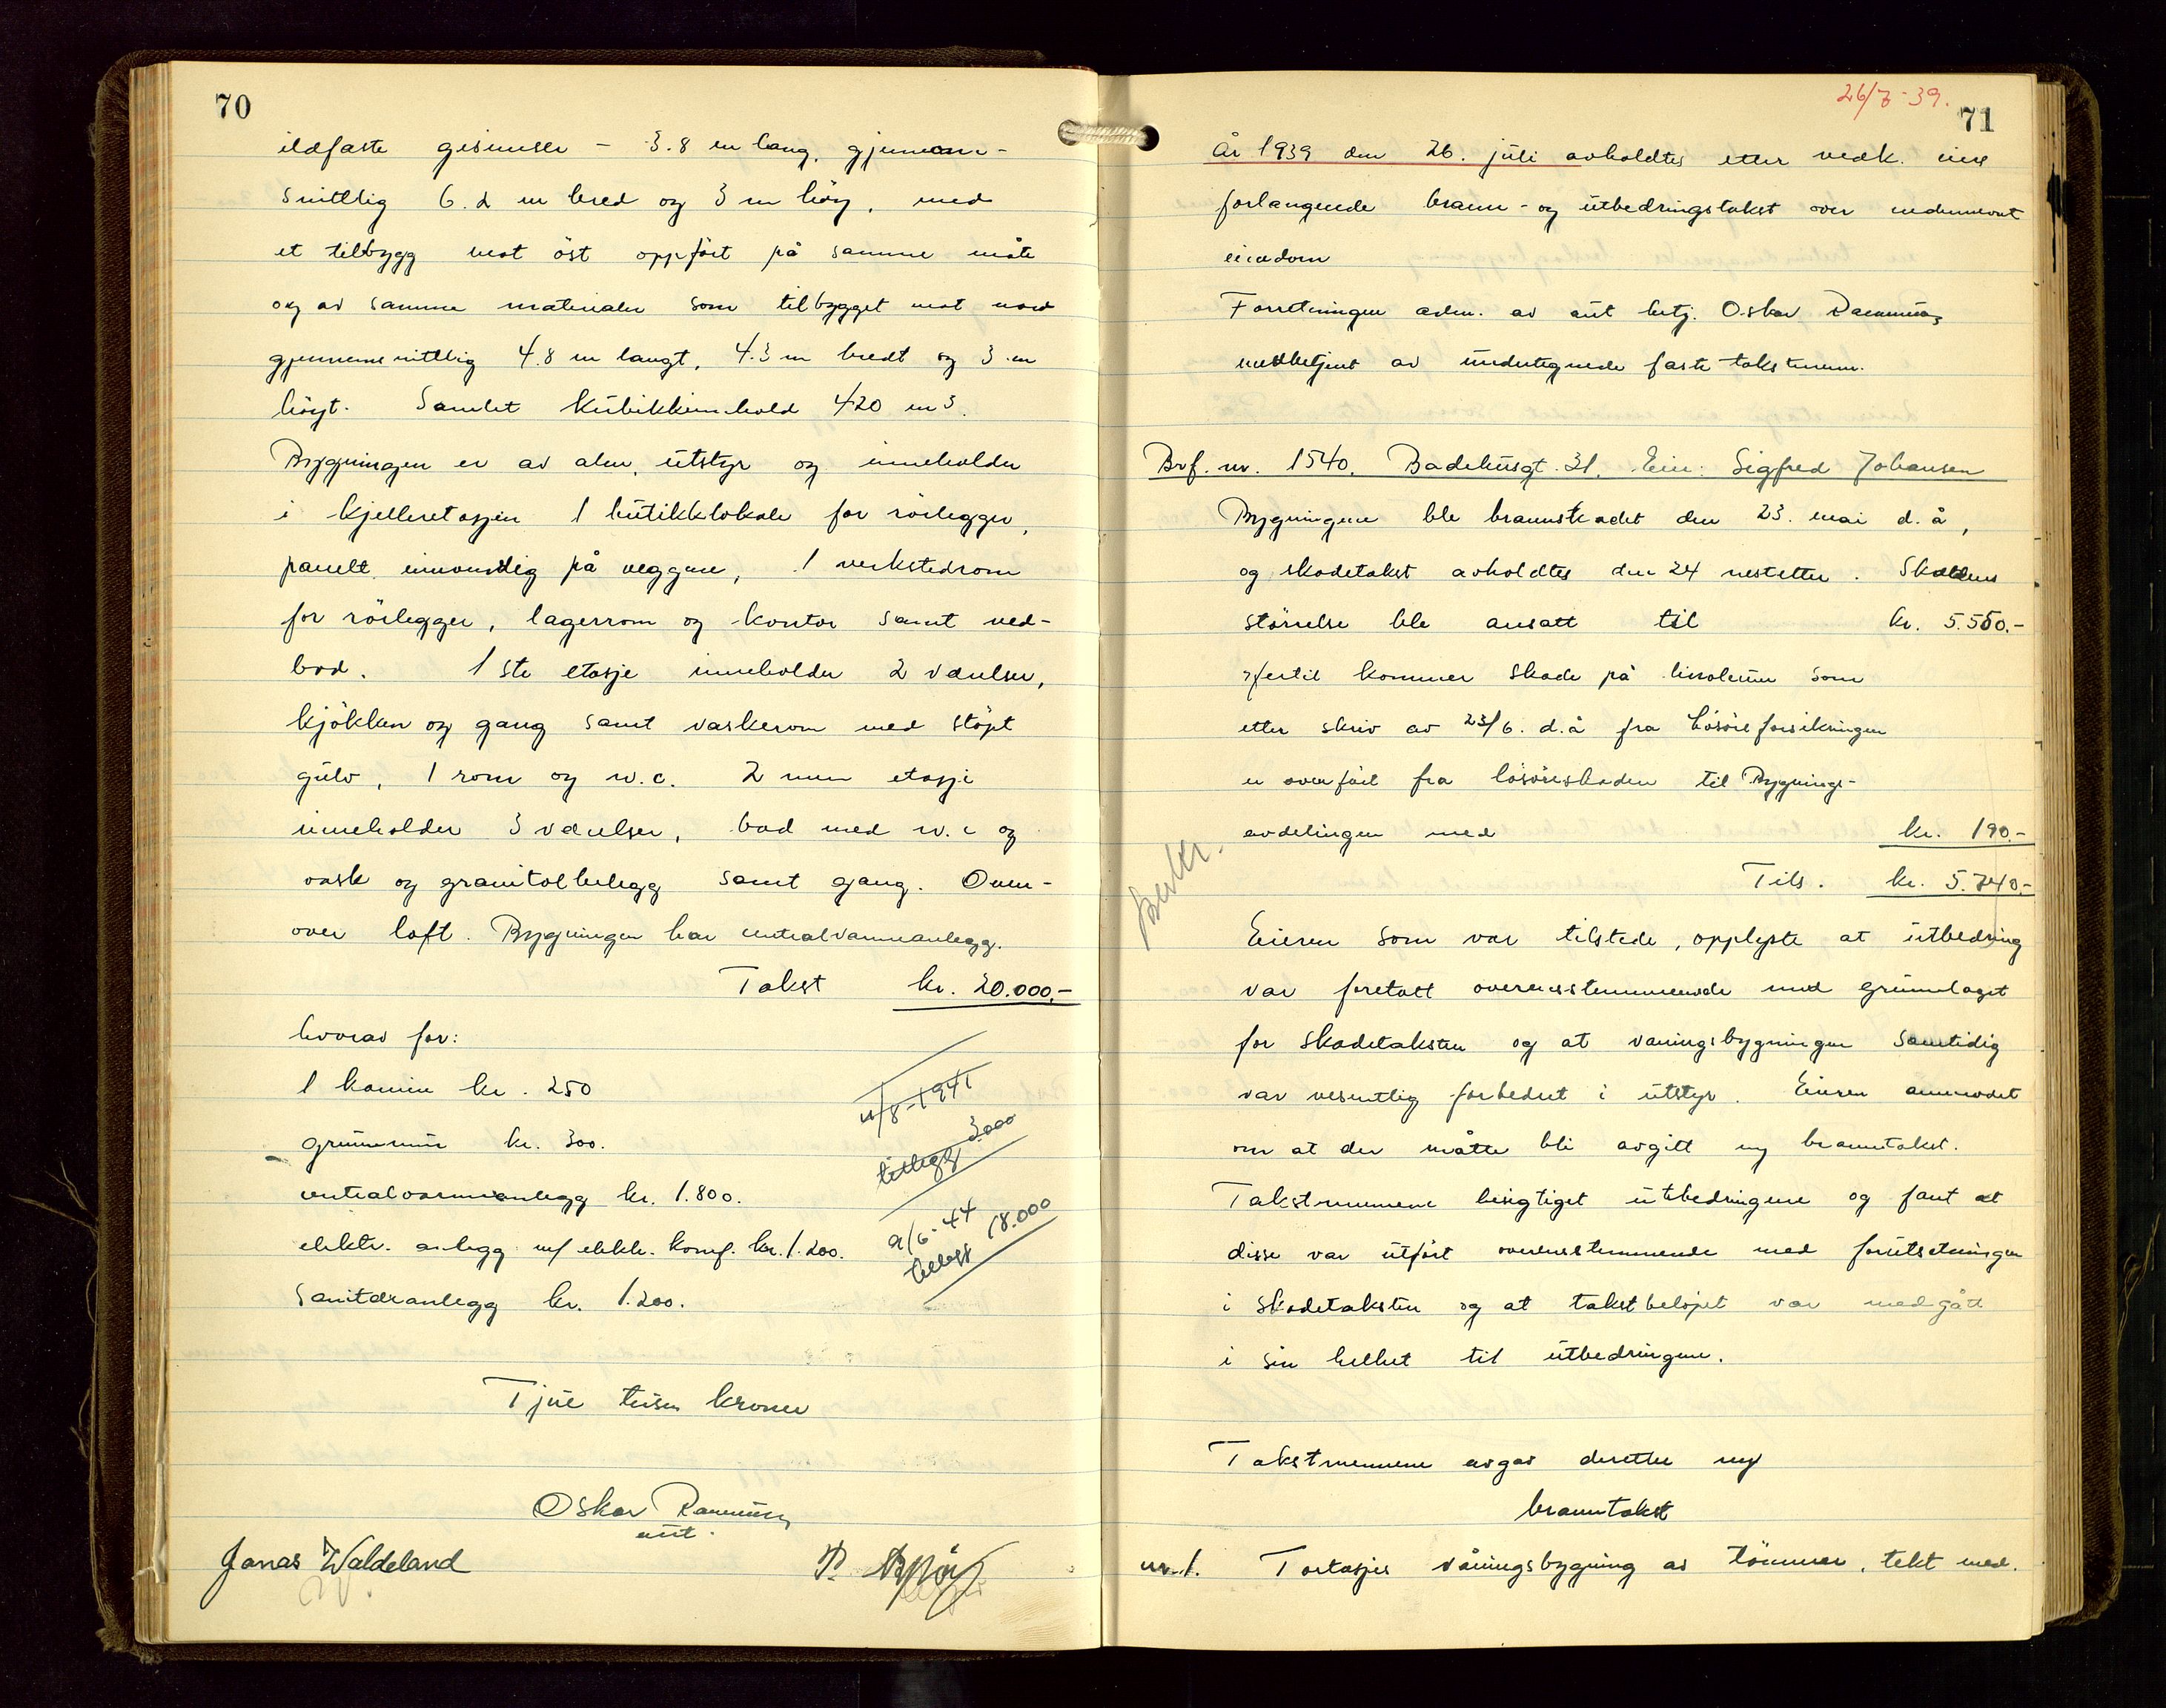 70
ildfaste gesimser - 3.8 m lang, gjennem-
snittlig 6.2 m bred og 3 m høy, med
et tilbygg mot øst oppført på samme måte
og av samme materialer som tilbygget mot nord
gjennemsnittlig 4.8 m langt, 4.3 m bredt og 3 m
høyt. Samlet kubikkinnhold 420 m3.
Bygningen er av alm. utstyr og inneholder
i kjelleretasjen 1 butikklokale for rørlegger,
panelt innvendig på veggene, 1 verkstedrom
for rørlegger, lagerrom og kontor samt ved-
bod. 1ste etasje inneholder 2 værelser,
kjøkken og gang samt vaskerom med støpt
gulv, 1 rom og w.c. 2nen etasje
inneholder 3 værelser, bad med w.c og
vask og granitolbelegg samt gang. Oven-
over loft. Bygningen har centralvarmeanlegg.
Takst kr. 20.000.-
hvorav for:
1 kamin kr. 250
grunnmur kr. 300.
centralvarmeanlegg kr. 1.800.
elektr. anlegg m/ elektr. komf. kr. 1.200.
Sanitæranlegg kr. 1.200.
11/8-1941
tillegg 3000
9/6-44
tillegg 18.000
Tjue tusen kroner
Oskar Rasmussen
aut.
Jonas Waldeland
26/7-39.
71
År 1939 den 26. juli avholdtes etter vedk. eiers
forlangende brann- og utbedringstakst over nedennevnt
eiendom
Forretningen adm. av aut betj. Oskar Rasmussen
medbetjent av undertegnede faste takstmenn.
Brf. nr. 1540. Badehusgt. 31. Eier: Sigfred Johansen
Bygningene ble brannskadet den 23. mai d.å,
og skadetakst avholdtes den 24 nestetter. Skadens
størrelse ble ansatt til kr. 5.550.-
hertil kommer skade på linoleum som
etter skriv av 23/6. d.å fra Løsøreforsikringen
er overført fra løsøreskaden til Bygnings-
avdelingen med kr. 190.-
Tils. kr. 5.740.-
Eieren som var tilstede, opplyste at utbedring
var foretatt overensstemmende med grunnlaget
for skadetaksten og at våningsbygningen samtidig
var vesentlig forbedret i utstyr. Eieren anmodet
om at der måtte bli avgitt ny branntakst.
Takstmennene besigtiget utbedringene og fant at
disse var utført overensstemmende med forutsetningen
i skadetaksten og at takstbeløpet var medgått
i sin helhet til utbedringene.
Takstmennene avgav deretter ny
branntakst
nr. 1. Toetasjes våningsbygning av tømmer, tekt med.